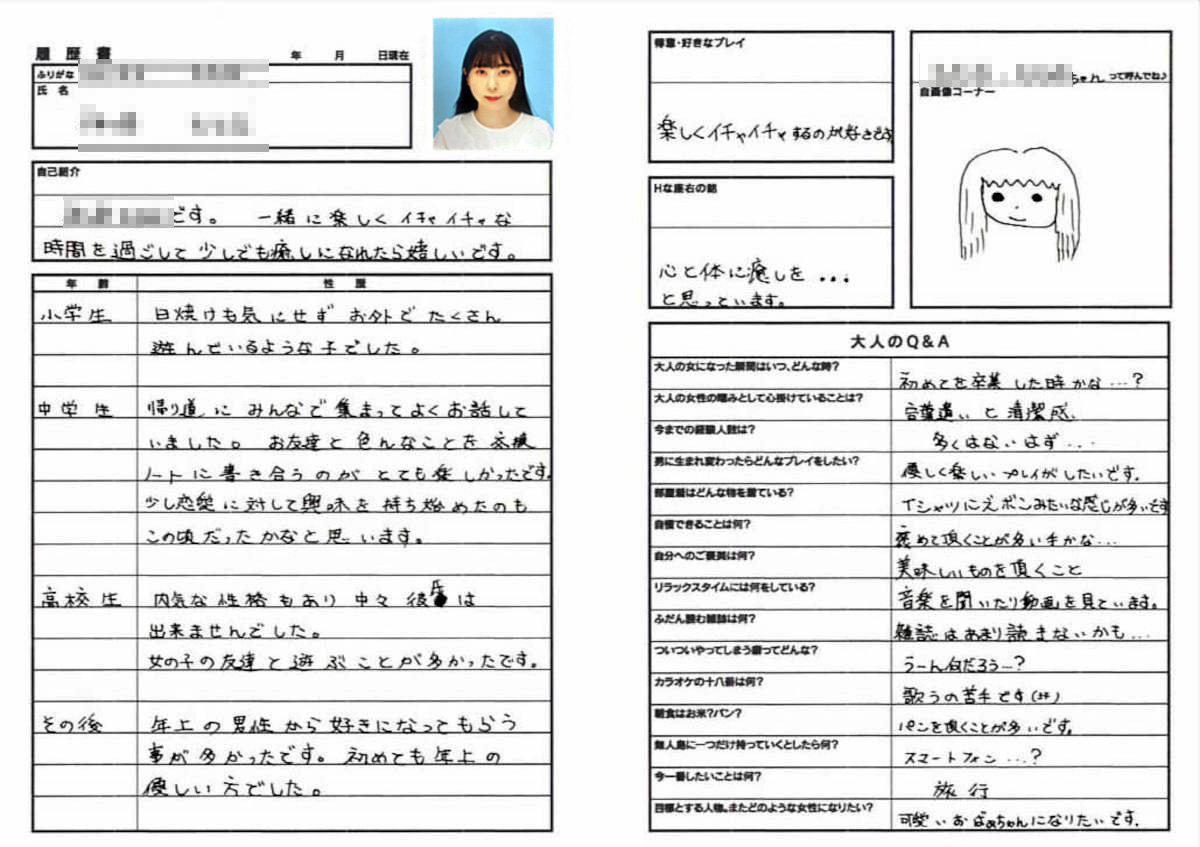 履歴書
年 月 日現在
ふりがな
氏 名
自己紹介
です。 一緒に楽しくイチャイチャな
時間を過ごして少しでも癒しになれたら嬉しいです。
年 齢 性 歴
小学生 日焼けも気にせずお外でたくさん
遊んでいるような子でした。
中学生 帰り道にみんなで集まってよくお話して
いました。 お友達と色んなことを交換
ノートに書き合うのがとても楽しかったです。
少し恋愛に対して興味を持ち始めたのも
この頃だったかなと思います。
高校生 内気な性格もあり中々彼氏は
出来ませんでした。
女の子の友達と遊ぶことが多かったです。
その後 年上の男性から好きになってもらう
事が多かったです。初めても年上の
優しい方でした。
得意・好きなプレイ
楽しくイチャイチャするのが好きです
Hな座右の銘
心と体に癒しを...
と思っています。
ちゃん って呼んでね♪
自画像コーナー
大人のQ&A
大人の女になった瞬間はいつ、どんな時? 初めてを卒業した時かな...?
大人の女性の嗜みとして心掛けていることは? 言葉遣いと清潔感
今までの経験人数は? 多くはないはず...
男に生まれ変わったらどんなプレイをしたい? 優しく楽しいプレイがしたいです。
部屋着はどんな物を着ている? Tシャツに短ズボンみたいな感じが多いです
自慢できることは何? 褒めて頂くことが多い手かな...
自分へのご褒美は何? 美味しいものを頂くこと
リラックスタイムには何をしている? 音楽を聞いたり動画を見ています。
ふだん読む雑誌は何? 雑誌はあまり読まないかも...
ついついやってしまう癖ってどんな? うーん何だろう...?
カラオケの十八番は何? 歌うの苦手です
朝食はお米?パン? パンを頂くことが多いです。
無人島に一つだけ持っていくとしたら何? スマートフォン...?
今一番したいことは何? 旅行
目標とする人物。またどのような女性になりたい? 可愛いおばあちゃんになりたいです。